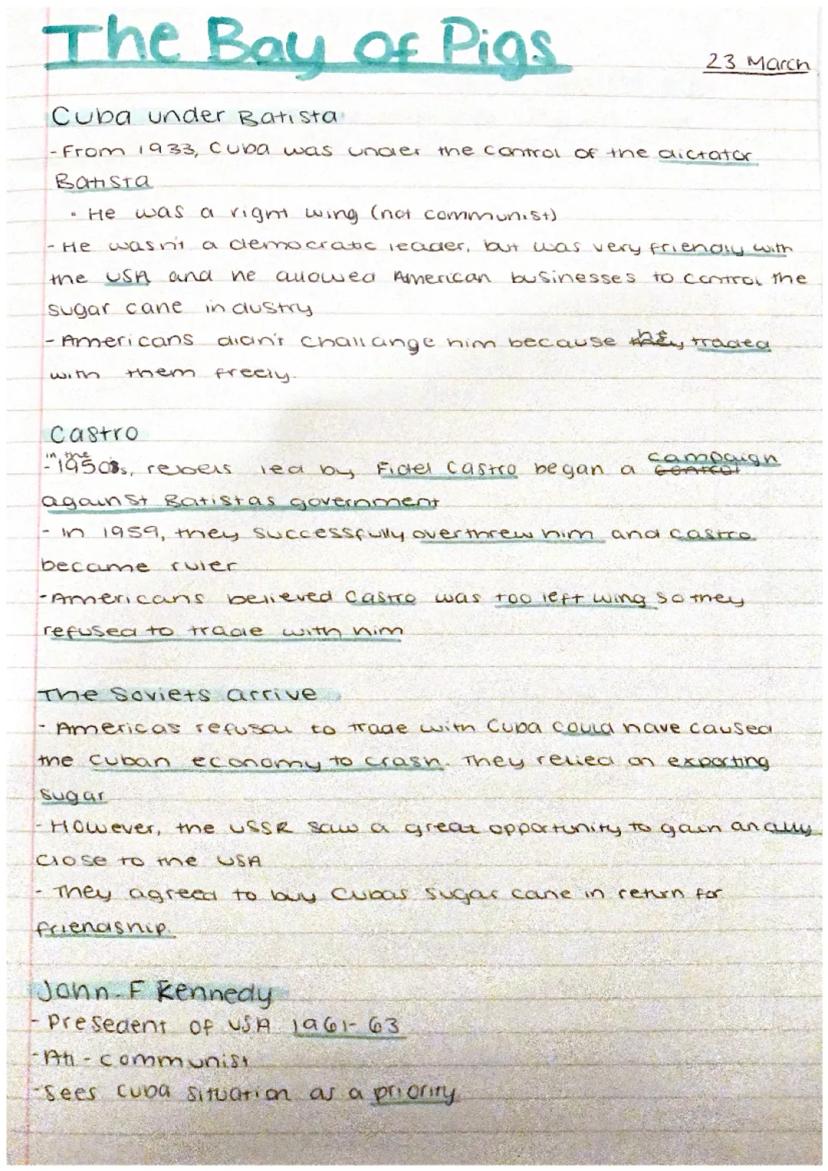 The Bay of Pigs
23 March
Cuba under Batista
-From 1933, Cuba was under the control of the dictator
Batista
• He was a right wing (not communist)
-He wasn't a democratic leader, but was very friendly with
the USA and he allowed American businesses to control the
sugar cane industry
-Americans didn't challange him because he traded
with them freely.
Castro
-in the 1950s, rebels led by Fidel Castro began a campaign
against Batistas government
- In 1959, they successfully overthrew him and Castro
became ruler
-Americans believed Castro was too left wing so they
refused to trade with him
The Soviets arrive
- Americas refusal to trade with Cuba could have caused
the Cuban economy to crash. They relied on exporting
sugar
-However, the USSR saw a great opportunity to gain an ally
close to the USA
- They agreed to buy Cubas sugar cane in return for
friendship.
John-F Kennedy
- Presedent of USA 1961-63
-Ati-communist
-Sees Cuba situation as a priority